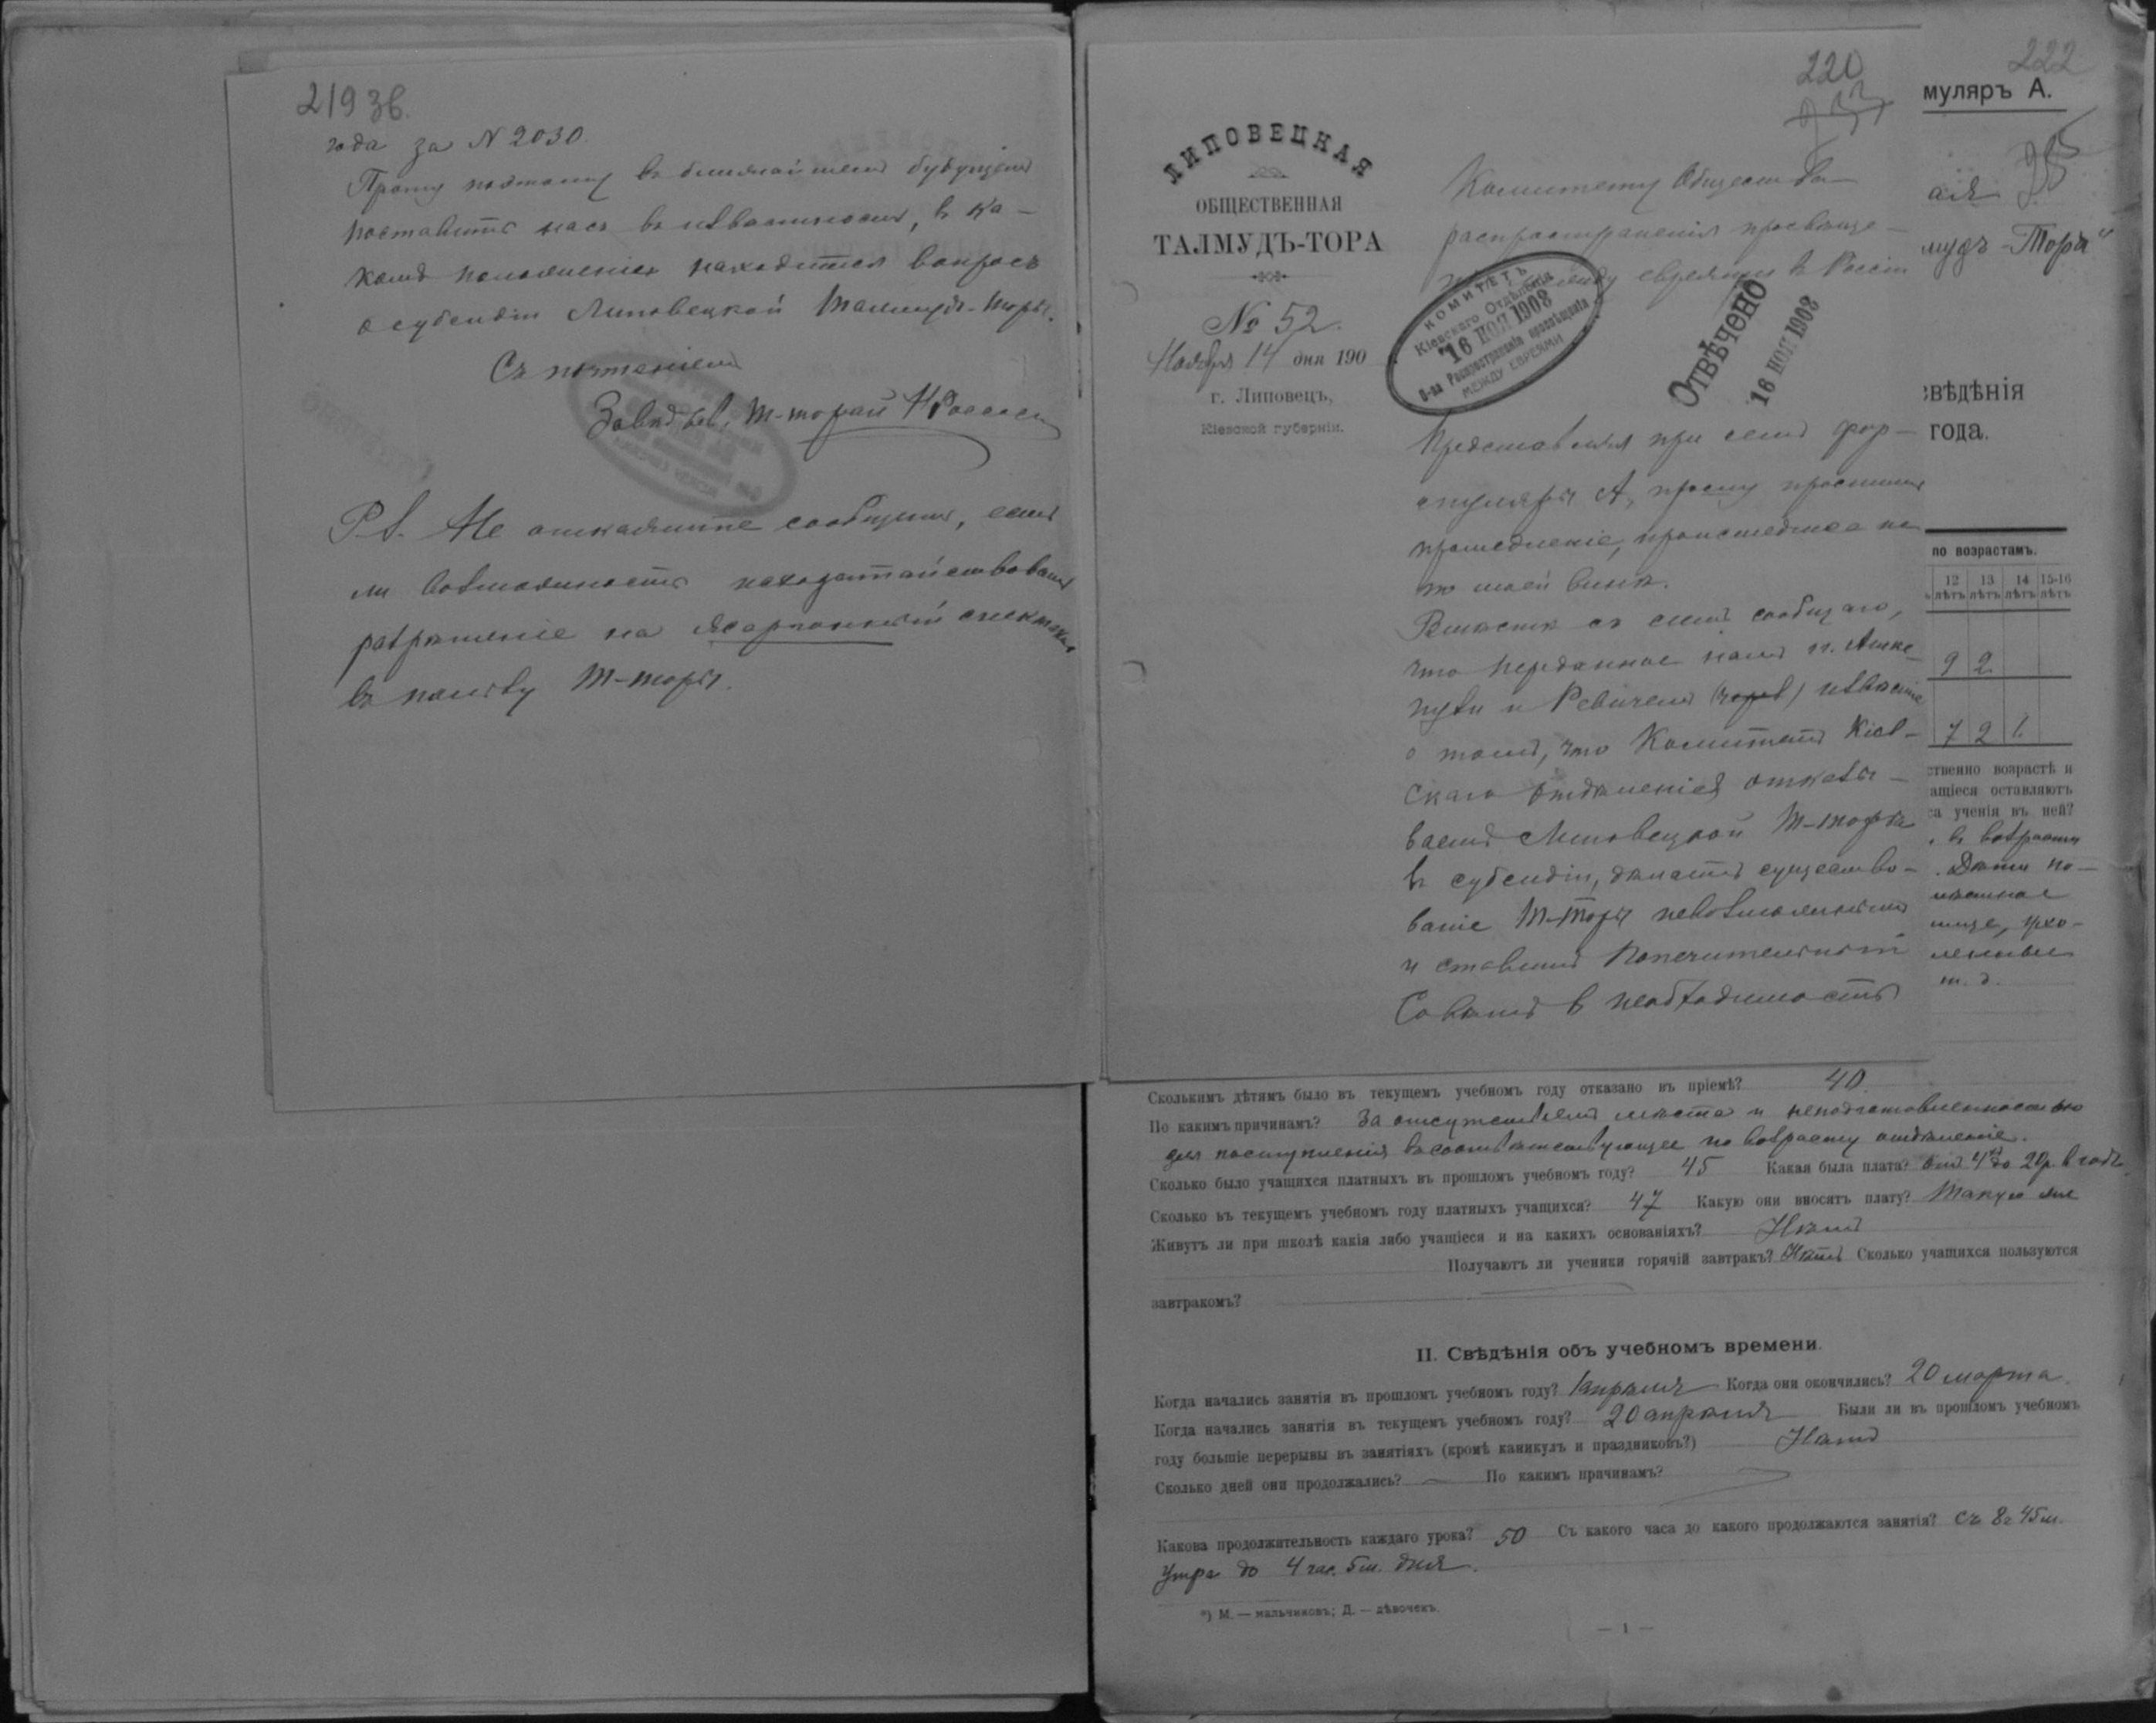 219 зв.
года за N 2030.
Прошу поэтому въ ближайшемъ будущемъ
поставить насъ въ извѣстность, въ ка-
комъ положеніи находится вопросъ
о субсидіи Липовецкой Талмудъ-Торы.
Съ почтеніемъ
Завѣдыв. Т-торой
P.S. Не откажите сообщить, есть
ли возможность исходатайствовать
разрѣшеніе на жаргонный спектакль
въ пользу Т-торы.
220
ЛИПОВЕЦКАЯ
ОБЩЕСТВЕННАЯ
ТАЛМУДЪ-ТОРА
№ 52.
Ноября 14 дня 190
г. Липовецъ,
Кіевской губерніи.
Комитету Общества
распространенія просвѣще-
нія между евреями въ Россіи
КОМИТЕТЪ
Кіевскаго Отдѣленія
16 НОЯ 1908
О-ва Распространенія просвѣщенія
МЕЖДУ ЕВРЕЯМИ
ОТВѢЧЕНО
16 НОЯ 1908
Представляя при семъ фор-
муляръ А, прошу простить
промедленіе, происшедшее не
по моей винѣ.
Вмѣстѣ съ симъ сообщаю,
что переданное намъ г.
и Ревичемъ извѣстіе
о томъ, что Комитетъ Кіев-
скаго Отдѣленія отказы-
ваетъ Липовецкой Т-торѣ
въ субсидіи, дѣлаетъ существо-
ваніе Т-Торы невозможнымъ
и ставитъ Попечительный
Совѣтъ въ необходимость
222
муляръ А.
ая
мудъ-Тора"
свѣдѣнія
года.
по возрастамъ.
12 лѣтъ 13 лѣтъ 14 лѣтъ 15-16 лѣтъ
9 2
7 2 1
ственно возрастѣ и
ащіеся оставляютъ
са ученія въ ней?
въ возрастѣ
Дѣти по-
т. д.
Сколькимъ дѣтямъ было въ текущемъ учебномъ году отказано въ пріемѣ? 40
По какимъ причинамъ? За отсутствіемъ мѣста и неподготовленностью
для поступленія въ соотвѣтствующее по возрасту отдѣленіе.
Сколько было учащихся платныхъ въ прошломъ учебномъ году? 45 Какая была плата? отъ 4 до 20р. въ годъ.
Сколько въ текущемъ учебномъ году платныхъ учащихся? 47 Какую они вносятъ плату? Такую же
Живутъ ли при школѣ какія либо учащіеся и на какихъ основаніяхъ? Нѣтъ
Получаютъ ли ученики горячій завтракъ? Нѣтъ Сколько учащихся пользуются
завтракомъ?
II. Свѣдѣнія объ учебномъ времени.
Когда начались занятія въ прошломъ учебномъ году? 1 апрѣля Когда они окончились? 20 марта.
Когда начались занятія въ текущемъ учебномъ году? 20 апрѣля Были ли въ прошломъ учебномъ
году большіе перерывы въ занятіяхъ (кромѣ каникулъ и праздниковъ?) Нѣтъ
Сколько дней они продолжались? — По какимъ причинамъ?
Какова продолжительность каждаго урока? 50 Съ какого часа до какого продолжаются занятія? Съ 8ч 45м.
утра до 4 час. 5м. дня.
*) М. — мальчиковъ; Д. — дѣвочекъ.
— 1 —